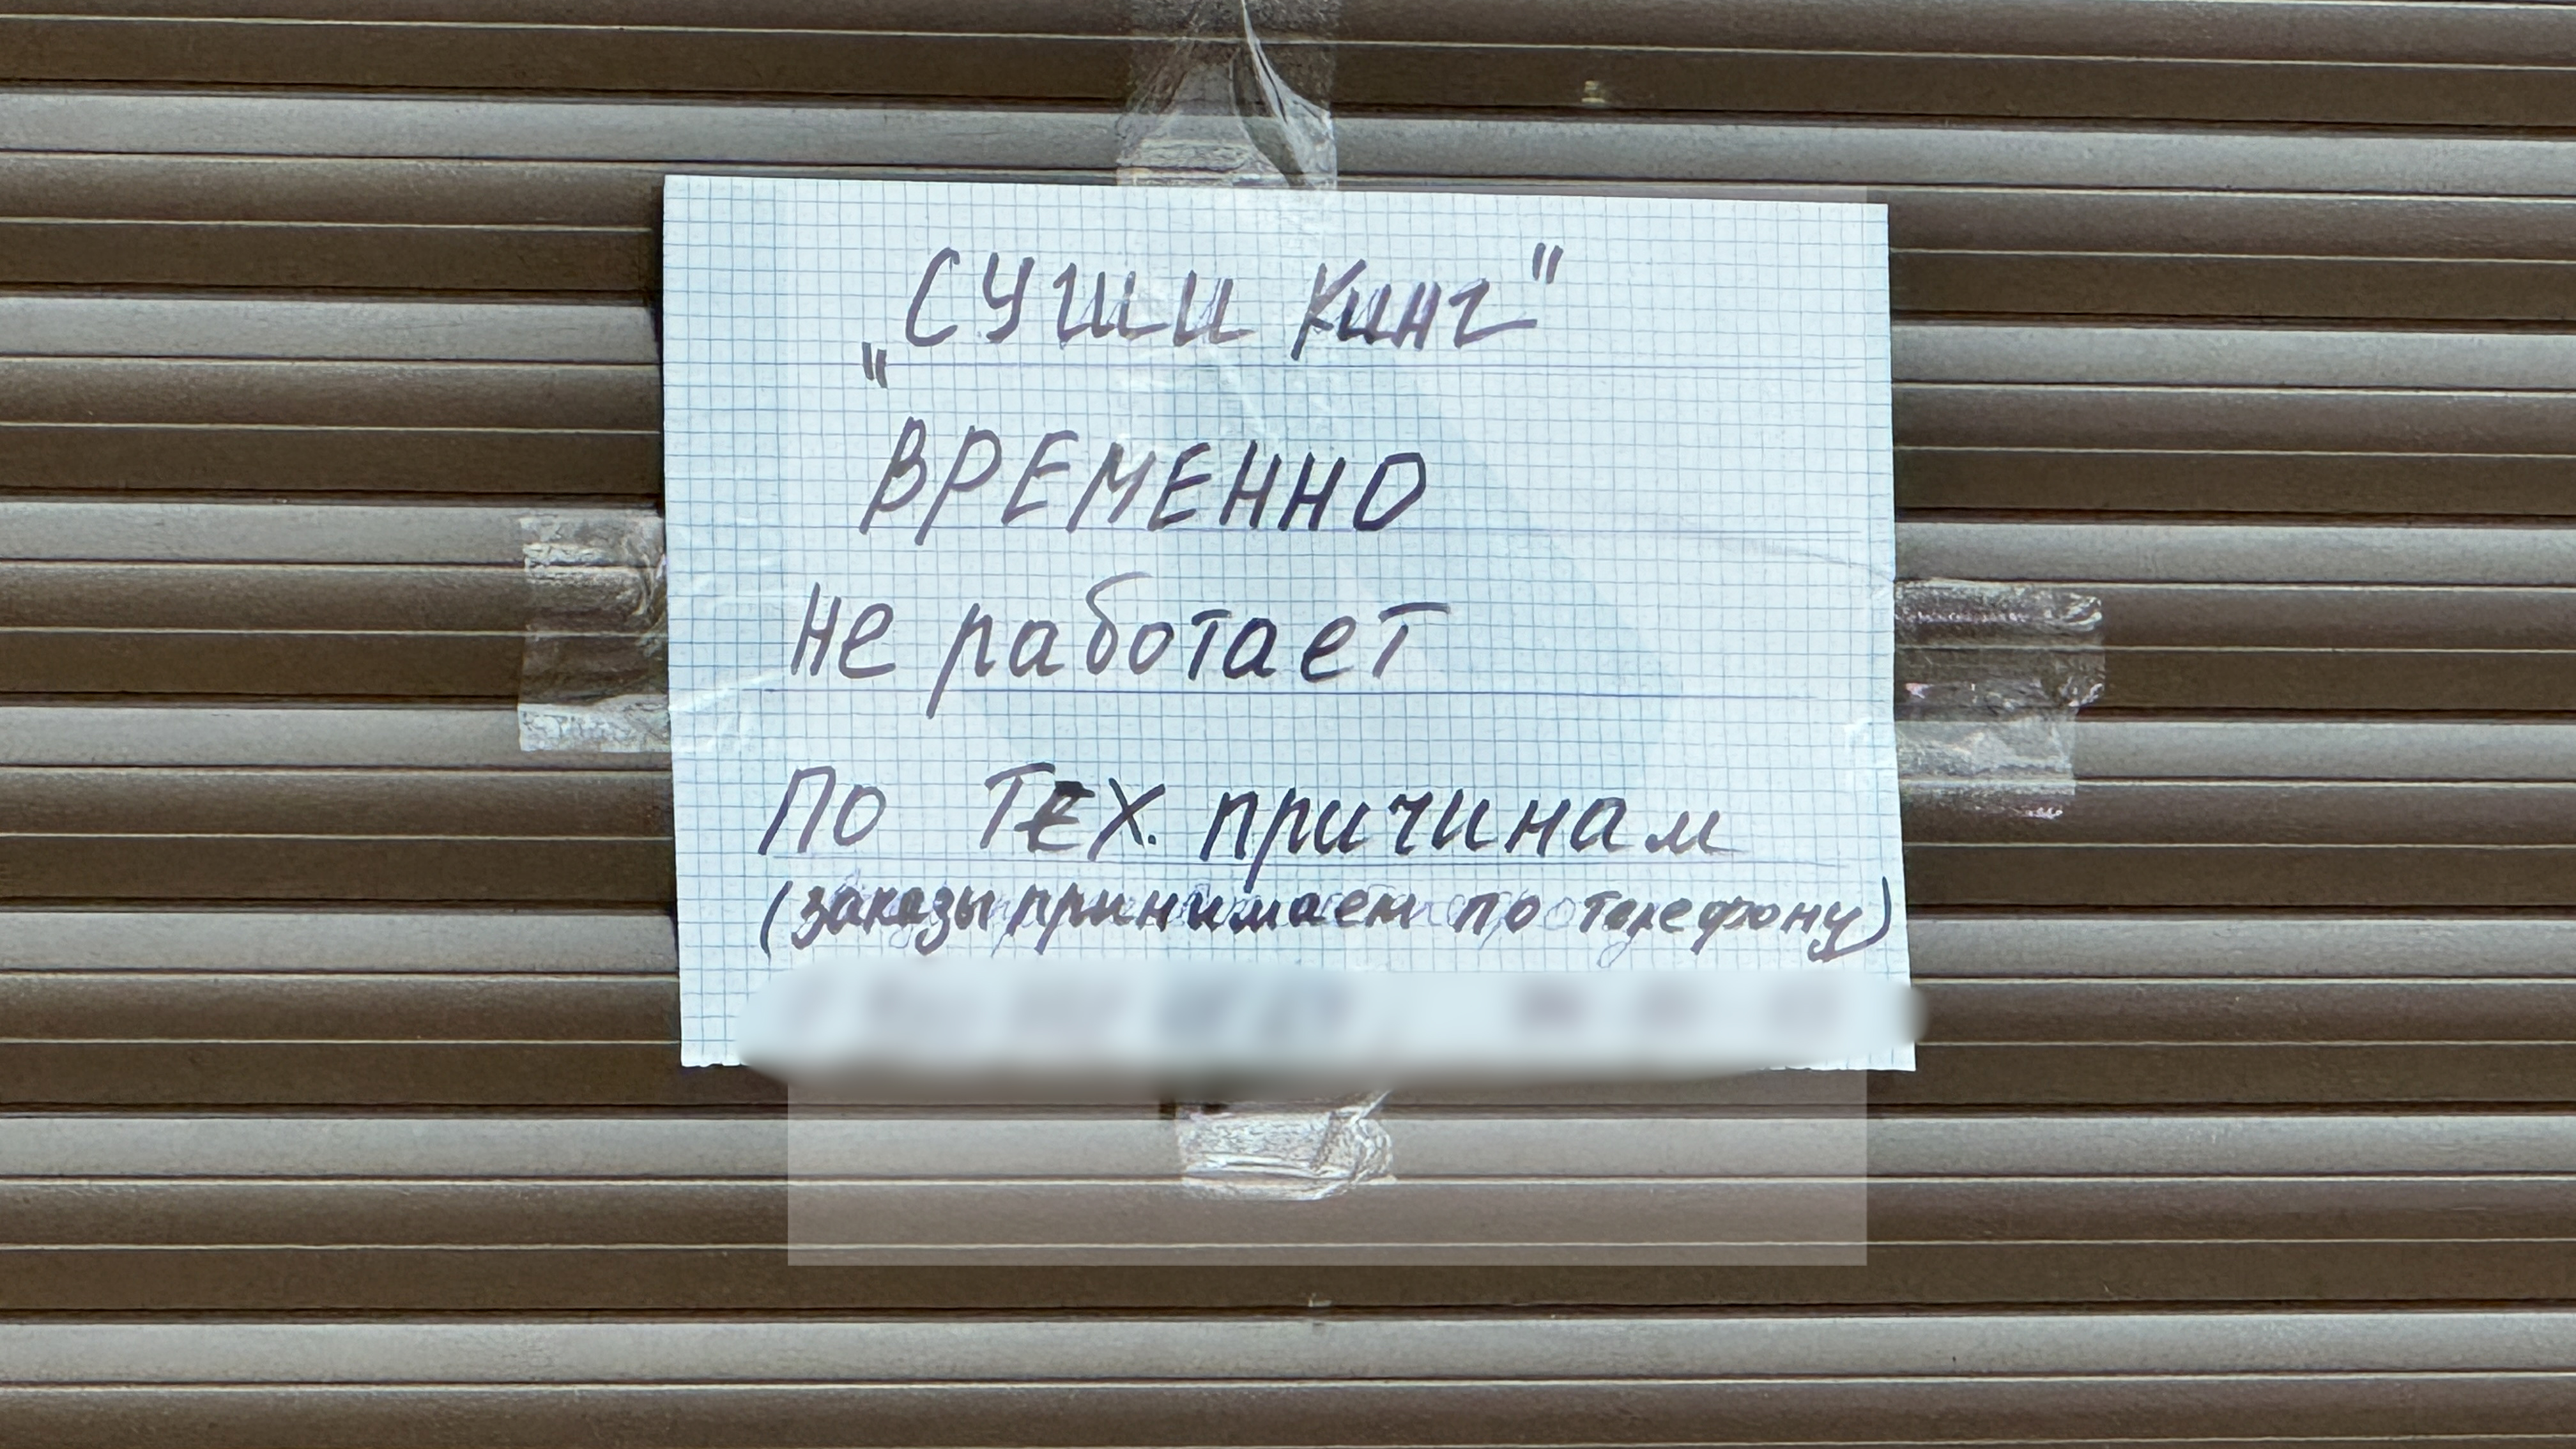 „Суши Кинг"
ВРЕМЕННО
Не работает
По ТЕХ. причинам
(заказы принимаем по телефону)